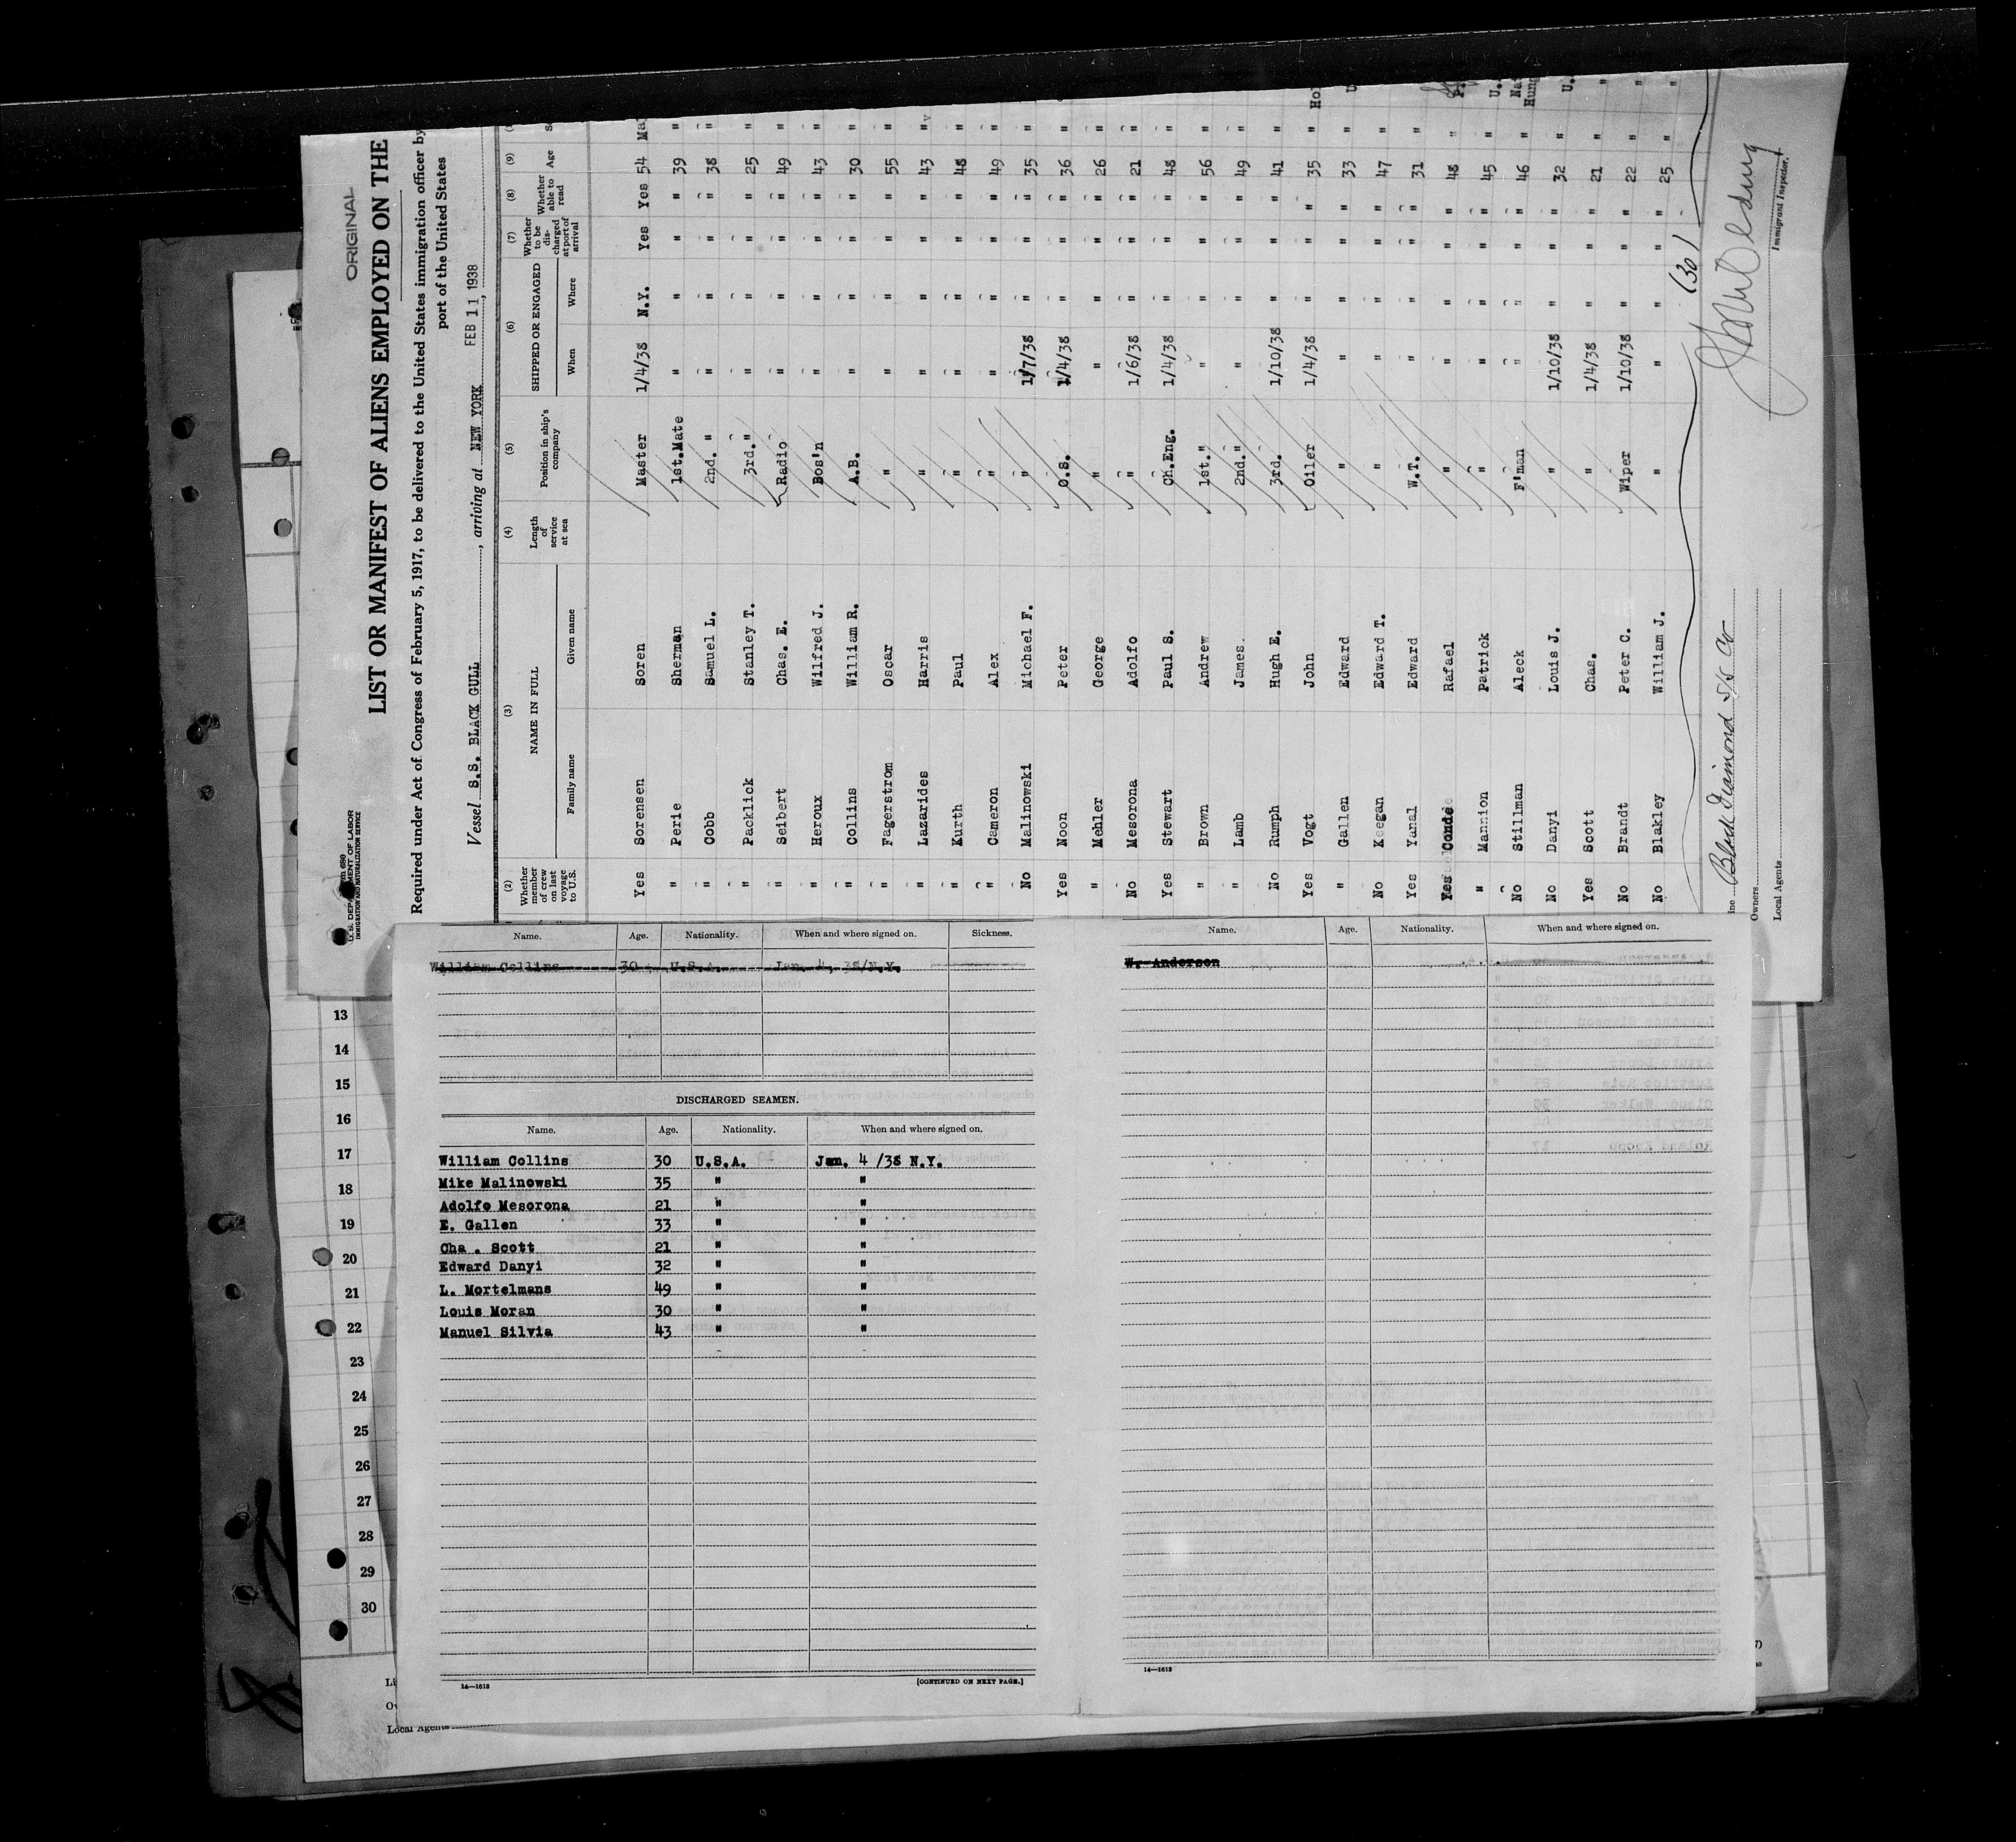 ORIGINAL
U. S. DEPARTMENT OF LABOR
IMMIGRATION AND NATURALIZATION SERVICE
LIST OR MANIFEST OF ALIENS EMPLOYED ON THE
Required under Act of Congress of February 5, 1917, to be delivered to the United States immigration officer by
port of the United States
Vessel S.S. BLACK GULL, arriving at NEW YORK FEB 11 1938
(2) (3) (4) (5) (6) (7) (8) (9)
Whether member of crew on last voyage to U.S. NAME IN FULL Family name Given name Length of service at sea Position in ship's company SHIPPED OR ENGAGED When Where Whether to be discharged at port of arrival Whether able to read Age
Yes Sorensen Soren Master 1/4/38 N.Y. Yes Yes 54
" Perie Sherman 1st.Mate " " " " 39 "
" Cobb Samuel L. 2nd. " " " " " 38 "
" Packlick Stanley T. 3rd." " " " " 25 "
" Seibert Chas. E. Radio " " " " 49 "
" Heroux Wilfred J. Bos'n " " " " 43 "
" Collins William R. A.B. " " " " 30 "
" Fagerstrom Oscar " " " " " 55 "
" Lazarides Harris " " " " " 43 "
" Kurth Paul " " " " " 48 "
" Cameron Alex " " " " " 49 "
No Malinowski Michael F. " 1/7/38 " " " 35 "
Yes Noon Peter O.S. 1/4/38 " " " 36 "
" Mehler George " " " " " 26 "
No Mesorona Adolfo " 1/6/38 " " " 21 "
Yes Stewart Paul S. Ch.Eng. 1/4/38 " " " 48 "
" Brown Andrew 1st." " " " " 56 "
" Lamb James. 2nd." " " " " 49 "
No Rumph Hugh E. 3rd. 1/10/38 " " " 41 "
Yes Vogt John Oiler 1/4/38 " " " 35 " Ho
" Gallen Edward " " " " " 33 " U
No Keegan Edward T. " " " " " 47 "
Yes Yanal Edward W.T. " " " " 31 "
Yes Conde Rafael " " " " " 48 "
" Mannion Patrick " " " " " 45 " U.
No Stillman Aleck F'man " " " " 46 " Na Hun
No Danyi Louis J. " 1/10/38 " " " 32 " U.
Yes Scott Chas. " 1/4/38 " " " 21 " "
No Brandt Peter C. Wiper 1/10/38 " " " 22 " "
No Blakley William J. " " " " " 25 " "
(30)
Black Diamond S/S Co
Owners
Local Agents
Immigrant Inspector.
Name. Age. Nationality. When and where signed on. Sickness.
William Collins 30 U.S.A. Jan. 4, 38/N.Y.
DISCHARGED SEAMEN.
Name. Age. Nationality. When and where signed on.
William Collins 30 U.S.A. Jan. 4 /38 N.Y.
Mike Malinowski 35 " "
Adolfo Mesorona 21 " "
E. Gallen 33 " "
Cha . Scott 21 " "
Edward Danyi 32 " "
L. Mortelmans 49 " "
Louis Moran 30 " "
Manuel Silvia 43 " "
14—1613
[CONTINUED ON NEXT PAGE.]
Name. Age. Nationality. When and where signed on.
W. Anderson
14—1613
13
14
15
16
17
18
19
20
21
22
23
24
25
26
27
28
29
30
Local Agents